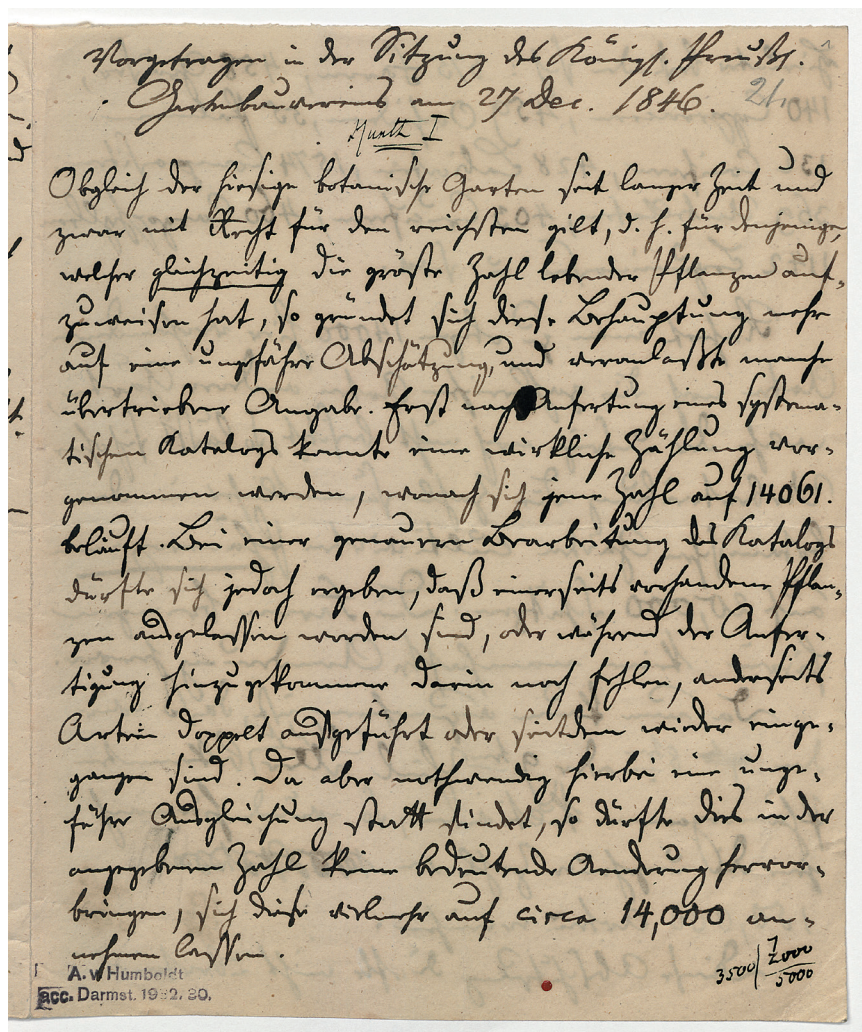 Vorgetragen in der Sitzung des Königl. Preußs.
Gartenbauvereins am 27 Dec. 1846. 21.
Kunth I
Obgleich der hiesige botanische Garten seit langer Zeit und
zwar mit Recht für den reichsten gilt, d. h. für denjenigen,
welcher gleichzeitig die größte Zahl lebender Pflanzen auf-
zuweisen hat, so gründet sich diese Behauptung mehr
auf eine ungefähre Abschätzung, und veranlaßte manche
übertriebene Angabe. Erst nach Anfertung eines systema-
tischen Katalogs konnte eine wirkliche Zählung vor-
genommen werden, wonach sich jene Zahl auf 14061.
beläuft. Bei einer genauern Bearbeitung des Katalogs
dürfte sich jedoch ergeben, daß einerseits vorhandene Pflan-
zen ausgelassen worden sind, oder während der Anfer-
tigung hinzugekommene darin noch fehlen, anderseits
Arten doppelt aufgeführt oder seitdem wieder einge-
gangen sind. Da aber nothwendig hierbei eine unge-
fähre Ausgleichung statt findet, so dürfte dies in der
angegebenen Zahl keine bedeutende Aenderung hervor-
bringen, sich diese vielmehr auf circa 14,000 an-
nehmen lassen.
3500 | 7000
5000
A. v. Humboldt
acc. Darmst. 1932. 30.